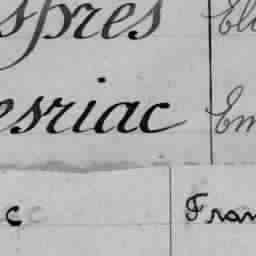 spres El
esriac Em
c Fran